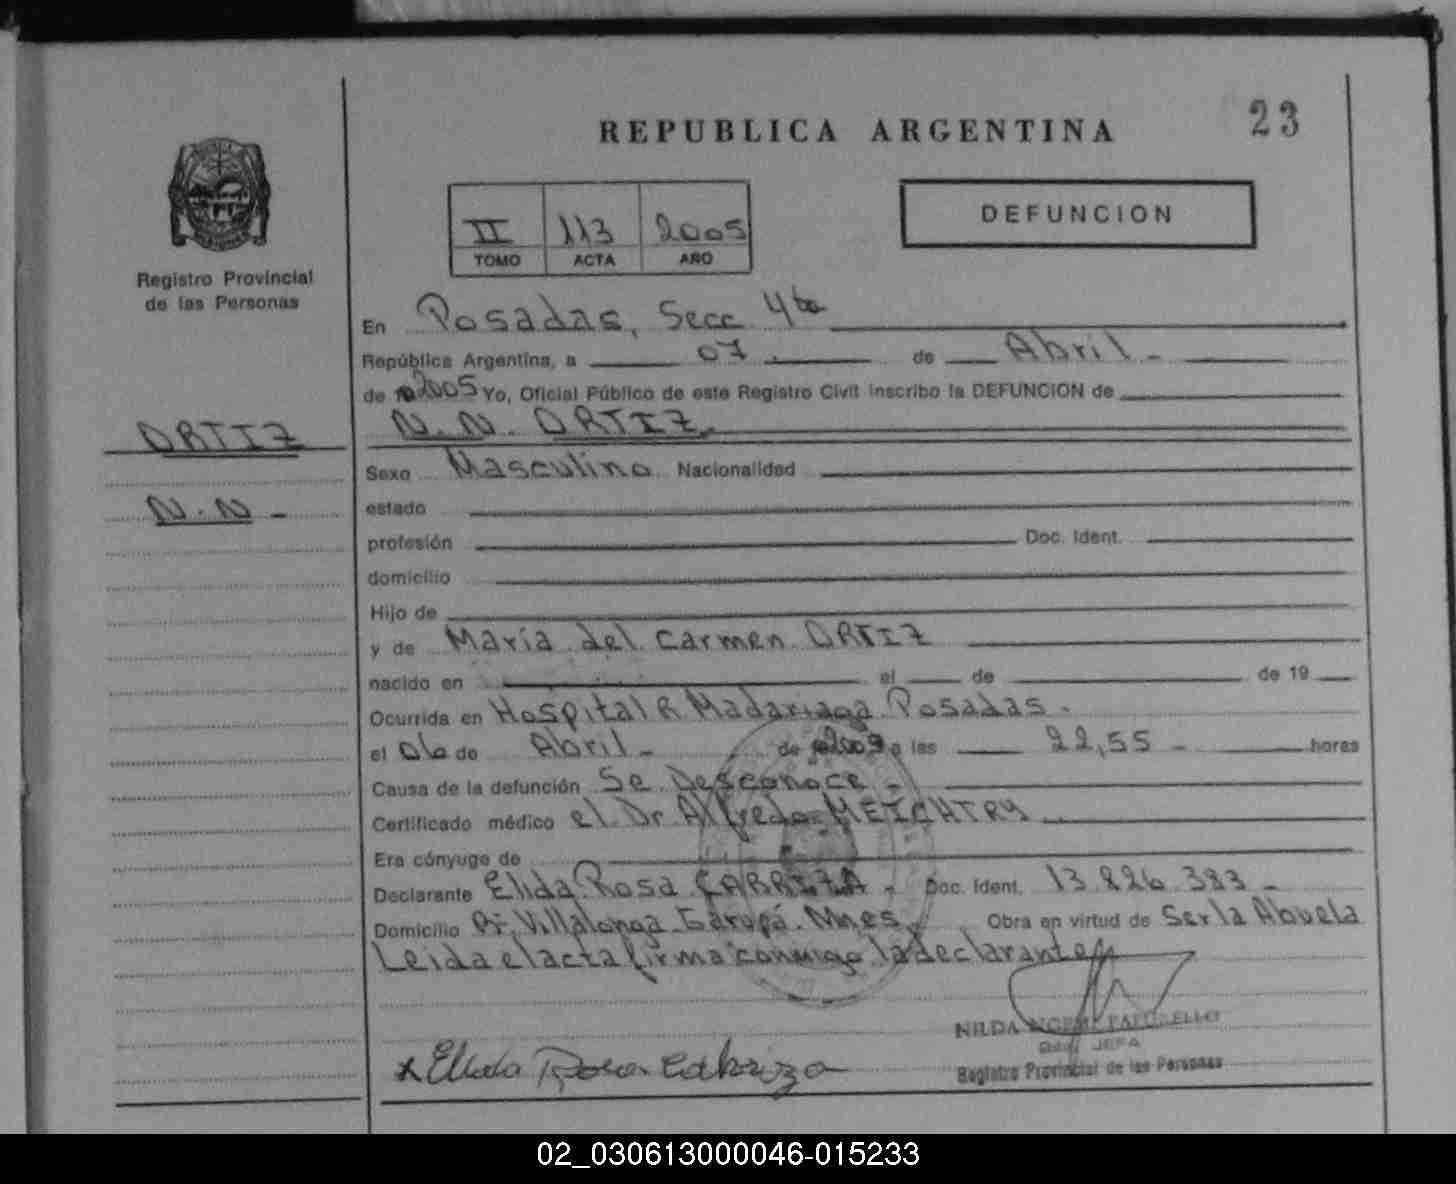 REPUBLICA ARGENTINA
23
II 113 2005
TOMO ACTA AÑO
DEFUNCION
Registro Provincial
de las Personas
En Posadas, Secc 4ta
República Argentina, a 07 de Abril -
de 2005 Yo, Oficial Público de este Registro Civil inscribo la DEFUNCION de
ORTIZ
N.N. -
N.N. ORTIZ.
Sexo Masculino Nacionalidad
estado
profesión Doc. Ident.
domicilio
Hijo de
y de María del Carmen ORTIZ
nacido en el de de 19
Ocurrida en Hospital R Madariaga Posadas.
el 06 de Abril - de a las 22,55 - horas
Causa de la defunción Se Desconoce -
Certificado médico el Dr Alfredo MEICHTRY
Era cónyuge de
Declarante Elida Rosa CABRIZA - Doc. Ident. 13.826.383 -
Domicilio Bº Villalonga Garupá. Mnes Obra en virtud de Ser la Abuela
Leida el acta firma conmigo la declarante
NILDA
JEFA
Registro Provincial de las Personas
x Elida Rosa Cabriza
02_030613000046-015233